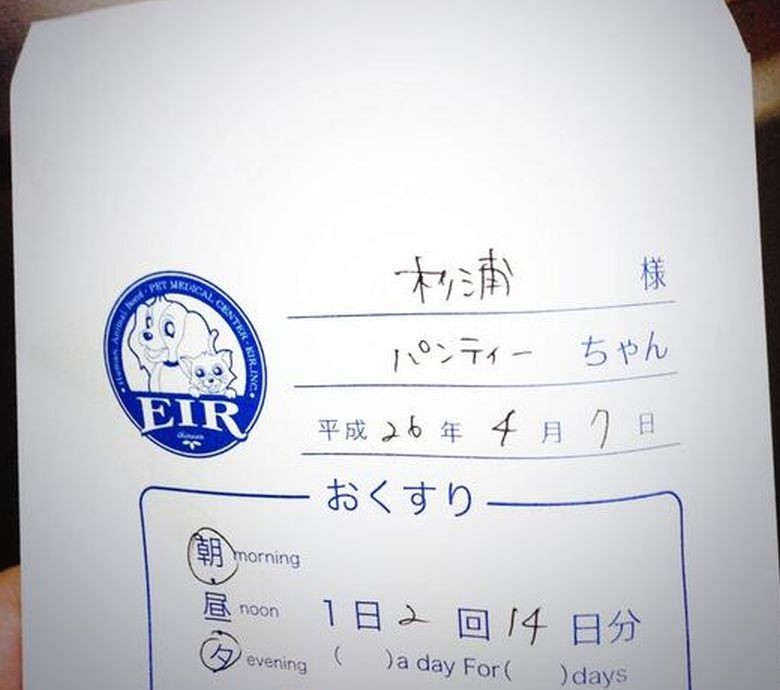 杉浦 様
パンティー ちゃん
平成 26 年 4 月 7 日
Human Animal Bond・PET MEDICAL CENTER・EIR,INC.
EIR
おくすり
朝 morning
昼 noon 1日2回14日分
夕 evening ( )a day For( )days